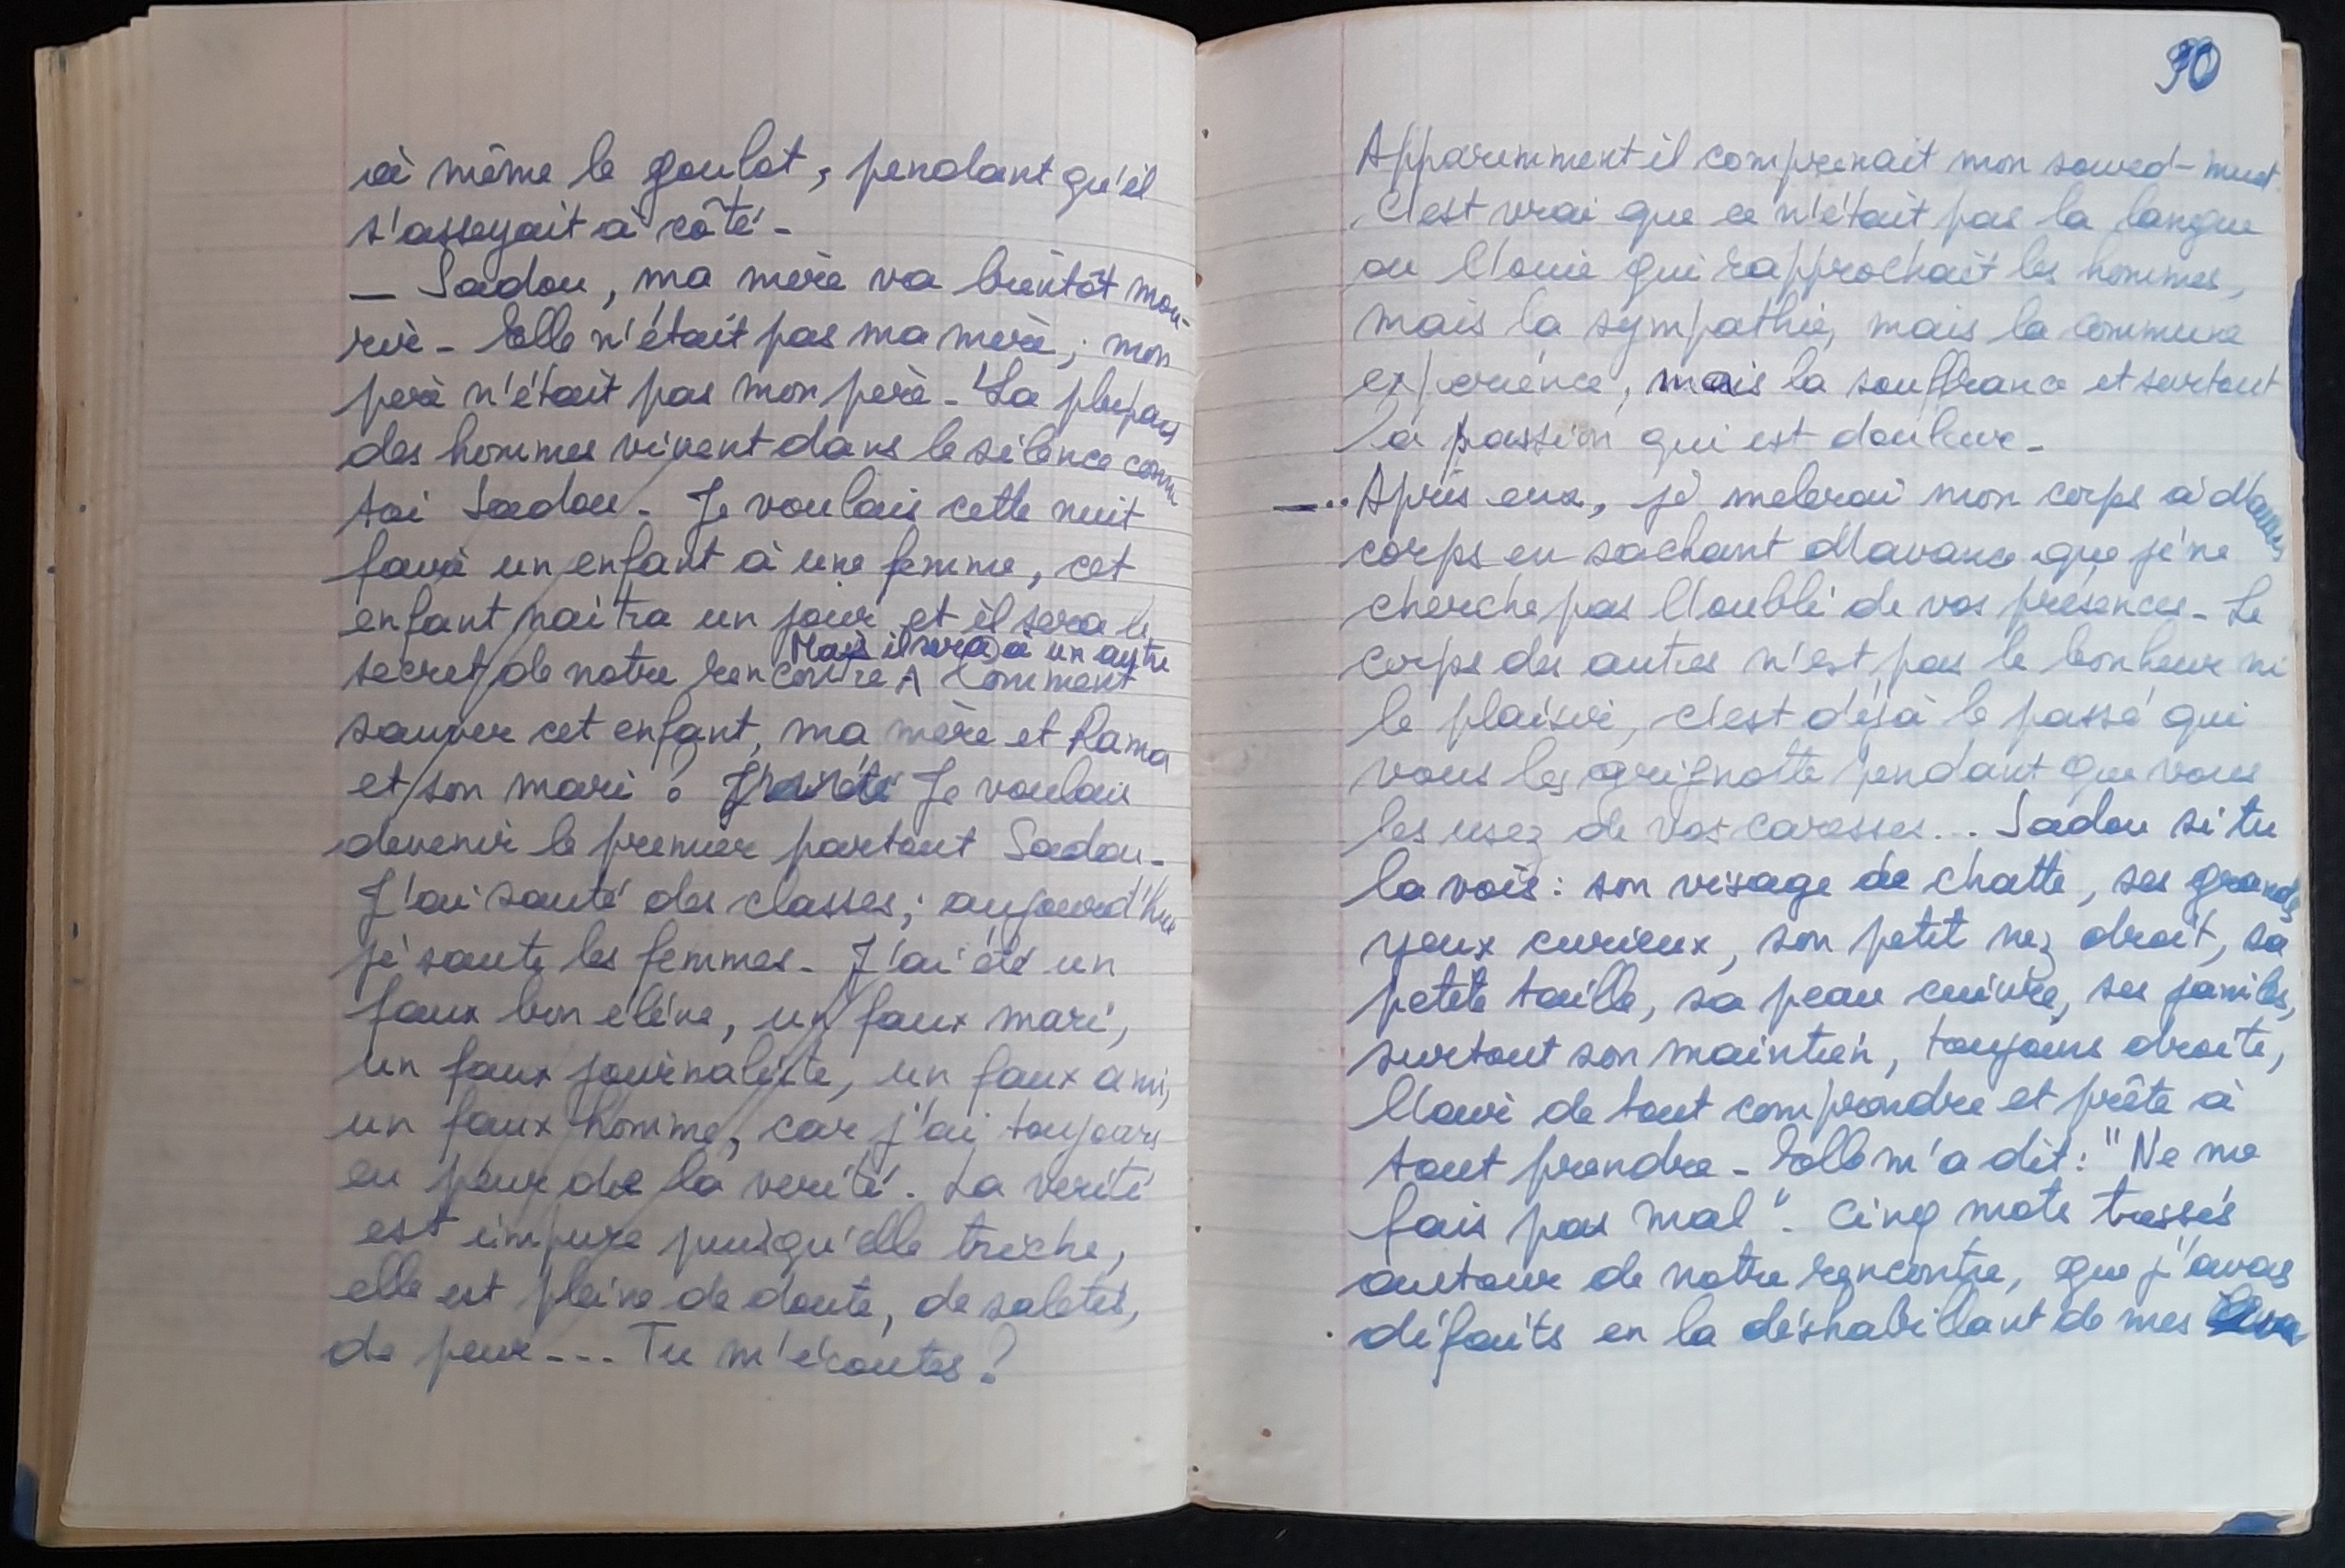 à même le goulot, pendant qu'il
s'asseyait à côté -
— Sadou, ma mère va bientôt mou-
rir - Elle n'était pas ma mère ; mon
père n'était pas mon père - La plupart
des hommes vivent dans le silence comme
toi Sadou - Je voulais cette nuit
faire un enfant à une femme, cet
enfant naitra un jour et il sera le
Mais il sera à un autre
secret de notre rencontre Comment
sauver cet enfant, ma mère et Rama
et son mari ? Je voulais
devenir le premier partout Sadou -
J'ai sauté des classes ; aujourd'hui
je saute les femmes - J'ai été un
faux bon élève, un faux mari,
un faux journaliste, un faux ami,
un faux homme, car j'ai toujours
eu peur de la verité. La verité
est impure puisqu'elle triche,
elle est pleine de doute, de saletés,
de peur - - - Tu m'écoutes ?
90
Apparemment il comprenait mon sourd-muet
C'est vrai que ce n'était pas la langue
ou l'ouie qui rapprochait les hommes,
mais la sympathie, mais la commune
experience, mais la souffrance et surtout
la passion qui est douleur -
— .. Après eux, je melerai mon corps à d'autres
corps en sachant d'avance que je ne
cherche pas l'oubli de vos présences - Le
corps des autres n'est pas le bonheur ni
le plaisir, c'est déjà le passé qui
vous les grignotte pendant que vous
les usez de vos caresses... Sadou si tu
la vois : son visage de chatte, ses grands
yeux curieux, son petit nez droit, sa
petite taille, sa peau cuivre, ses jambes,
surtout son maintien, toujours droite,
l'air de tout comprendre et prête à
tout prendre - Elle m'a dit : "Ne me
fais pas mal". Cinq mots tressés
autour de notre rencontre, que j'avais
défaits en la déshabillant de mes